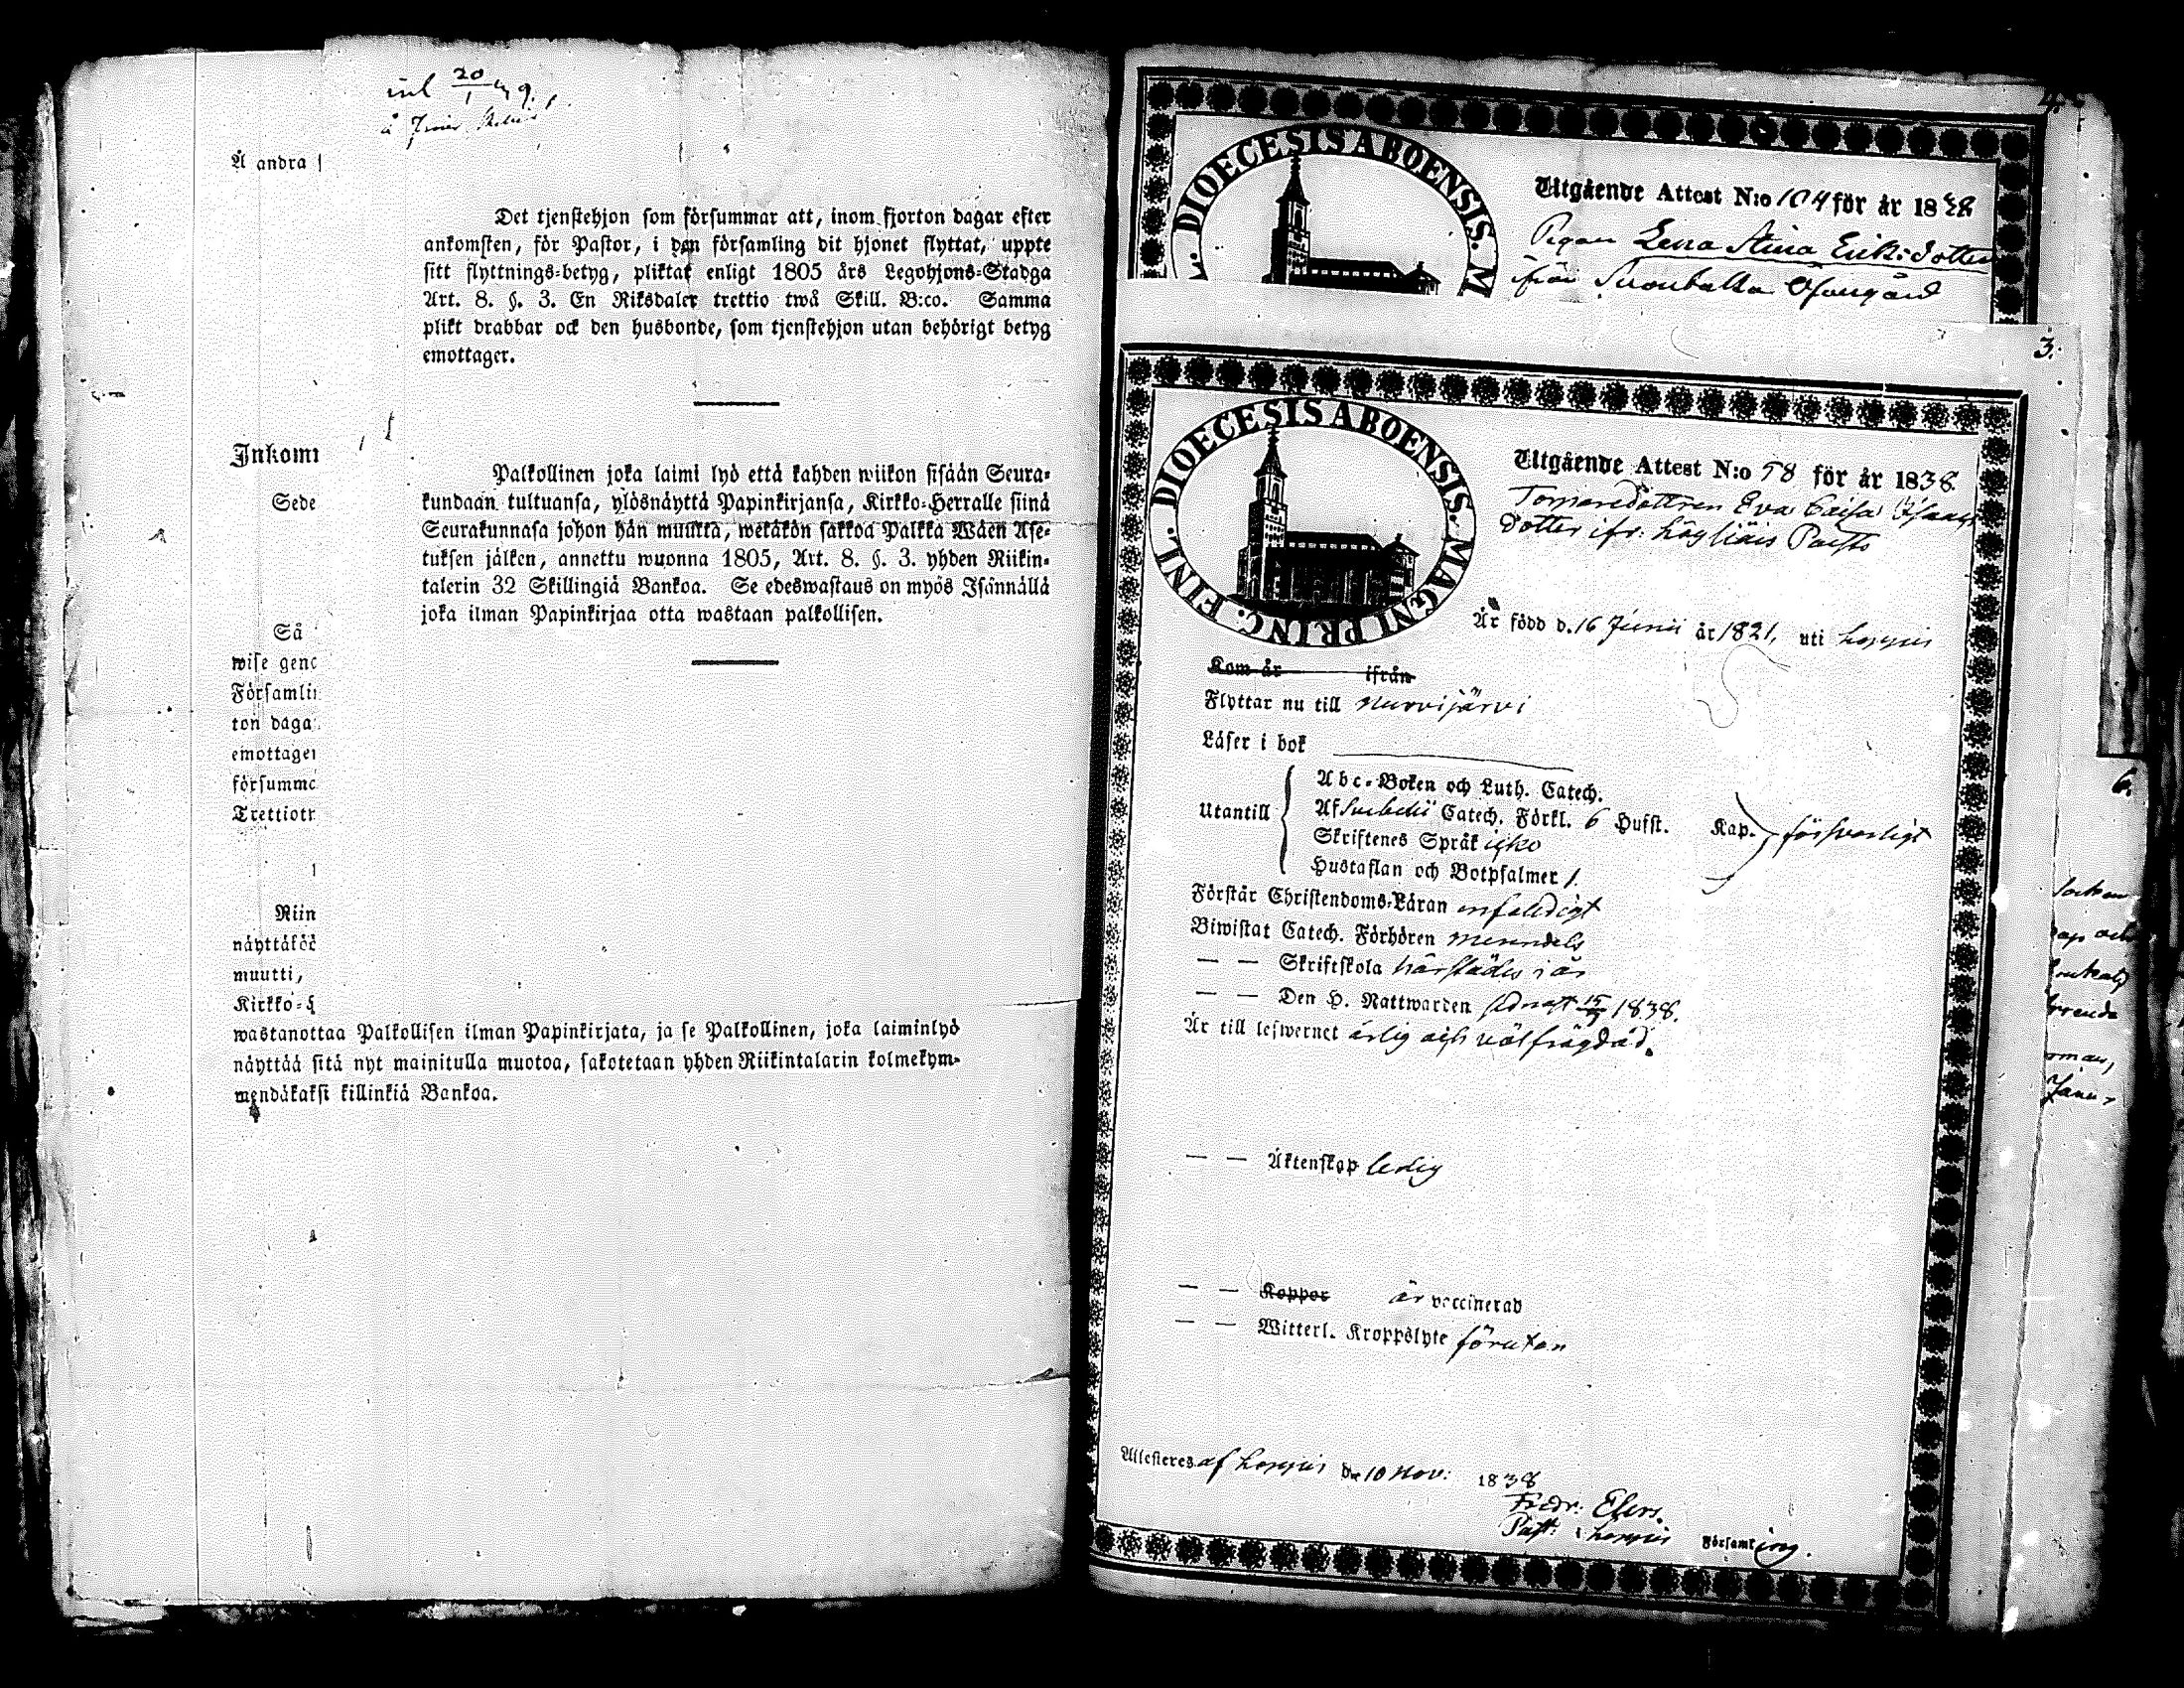 inl 20/1
Å andra
Det tjenstehjon som försummar att, inom fjorton dagar efter
ankomsten, för Pastor, i den församling dit hjonet flyttat, uppte
sitt flyttnings-betyg, pliktat enligt 1805 års Legohjons-Stadga
Art. 8. §. 3. En Riksdaler trettio twå Skill. B:co. Samma
plikt drabbar ock den husbonde, som tjenstehjon utan behörigt betyg
emottager.
Inkom
Palkollinen joka laimi lyö että kahden wiikon sisään Seura-
kundaan tultuansa, ylösnäyttä Papinkirjansa, Kirkko-Herralle siinä
Seurakunnasa johon hän muutta, wetäkön sakkoa Palkka Wäen Ase-
tuksen jälken, annettu wuonna 1805, Art. 8. §. 3. yhden Riikin-
talerin 32 Skillingiä Bankoa. Se edeswastaus on myös Isännällä
joka ilman Papinkirjaa otta wastaan palkollisen.
Sede
Så
wise gen
Församli
ton daga
emottager
försumm
Trettiot
Riin
näyttäköö
muutti,
Kirkko-H
wastanottaa Palkollisen ilman Papinkirjata, ja se Palkollinen, joka laiminlyö
näyttää sitä nyt mainitulla muotoa, sakotetaan yhden Riikintalarin kolmekym-
mendäkaksi killinkiä Bankoa.
4.
DIOECESIS ABOENSIS. M
Utgående Attest N:o 104 för år 1838
Pigan Lena Stina Eriksdotter
ifrån
3.
DIOECESIS ABOENSIS. MAGNI PRINC. FINL.
Utgående Attest N:o 58 för år 1838.
Torparedottren Eva Caisa Isaacs
dotter ifr:
Är född d. 16 Junii år 1821, uti Loppis
Kom år ifrån
Flyttar nu till Nurmijärvi
Läser i bok
Abc-Boken och Luth. Catech.
Utantill Af Svebelii Catech. Förkl. 6 Hufst. Kap. försvarligt
Skriftenes Språk icke
Hustaflan och Botpsalmer 1.
Förstår Christendoms-Läran enfaldigt
Biwistat Catech. Förhören
— — Skriftskola härstädes i år
— — Den H. Nattwarden sednast 15/7 1838.
Är till lefwernet ärlig och välfrägdad.
— — Äktenskap ledig
— — Koppor är vaccinerad
— — Witterl. Kroppslyte förutan
Attesteres af Loppis d. 10 Nov: 1838
Fredr: Elers.
Past: i Loppis Församling.
6.